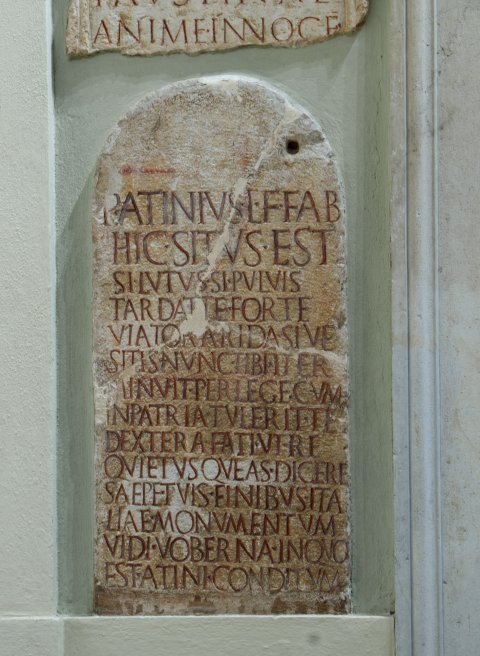 ANIME·INNOCE
P·ATINIVS·L·F·FAB
HIC·SITVS·EST
SI·LVTVS·SI·PVLVIS
TARDAT·TE·FORTE
VIATOR·ARIDA·SIVE
SITIS·NVNC·TIBI·ITER
MINVIT·PERLEGE·CVM
IN·PATRIA·TVLERIT·TE
DEXTERA·FATI·VT·RE
QVIETVS·QVEAS·DICERE
SAEPE·TVIS·FINIBVS·ITA
LIAE·MONVMENTVM
VIDI·VOBERNA·IN·QVO
EST·ATINI·CONDITVM